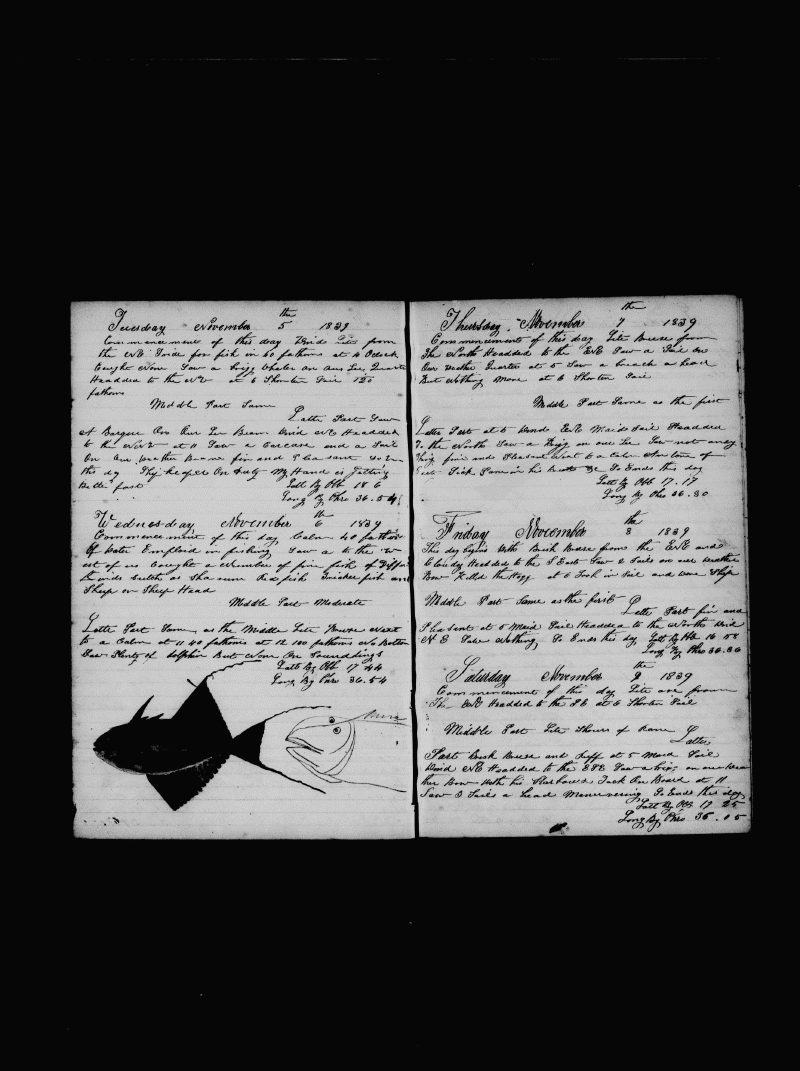 Tuesday November 5th 1839
Commencement of this day Wind Lite from
the NE Tride for fish in 60 fathoms at 4 Oclock
Cought None Saw a Brigg Whaler on Our Lee Quarter
Headded to the NW at 6 Shorten Sail 120
fathoms
Middle Part Same
Latter Part Saw
A Barque On Our Lee Beam Wind NE Headded
to the at 11 Saw a Carcase and a Sail
On Our Weather Beam fin and Pleasant So Ends
this dy Ship keeper On duty My Hand is Getting
Better fast
Latt By Obb 18 6
Long By Chro 36.54
Wednesday November 6th 1839
Commencement of this day Calm 40 fathoms
Of Water Emploid in fishing Saw a to the W
est of us Cought a Number of fine fish of Differ
Kinds Sutch as Red fish Tricker fish and
Sheep or Sheep Head
Middle Part Moderate
Latter Part Same as the Middle Lite Breese Next
to a Calm at 11 40 fathoms at 12 100 fathoms No Bottom
Saw Plenty of dolphin But None On Soundings
Latt By Obb 17 44
Long By Chro 36.54
Thursday November 7th 1839
Commencement of this day Lite Breese from
The North Headded to the ENE Saw a Sail On
Our Wether Quarter at 5 Saw a breach a head
But Nothing More at 6 Shorten Sail
Middle Part Same as the first
Latter Part at 5 Wind ENE Maid Sail Headded
To the North Saw a Brigg on our Lee Bow not away
fine and Pleasant Next to a Calm
Sick Pane in his Brest &c So Ends this day
Latt By Obb 17.17
Long By Chro 36.30
Friday November 8th 1839
This day begins With Brisk Breese from the ENE and
Cloudy Headded to the S East Saw 2 Sails on our Weather
Bow Killd the Hogg at 6 Took in Sail and Wore Ship
Middle Part Same as the first
Latter Part fin and
Pleasent at 5 Maid Sail Headded to the North Wind
N E Saw Nothing So Ends this dy Latt By Obb 16 58
Long By Chro 36.36
Saturday November 9th 1839
Commencement of this day Lite are from
The ENE Headded to the SE at 6 Shorten Sail
Middle Part Lite Showrs of Rane
Latter
Part Brisk Breese and Ruff at 5 Maid Sail
Wind NE Headded to the ESE Saw a Brigg on our Wea
ther Bow With his Starboard Tack On Board at 11
Saw 3 Sails a head Manuvering So Ends this day
Latt By Obb 17 25
Long By Chro 36.05